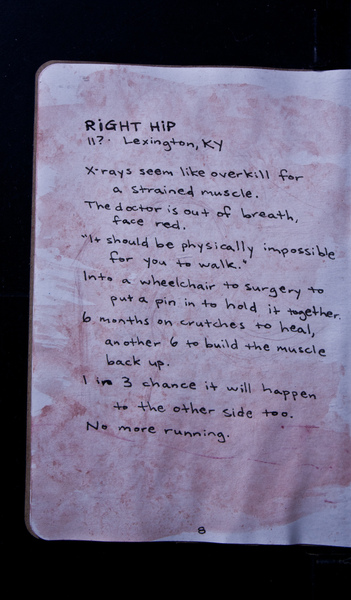 RIGHT HIP
11?. Lexington, KY
X-rays seem like overkill for
a strained muscle.
The doctor is out of breath,
face red.
"It should be physically impossible
for you to walk."
Into a wheelchair to surgery to
put a pin in to hold it together.
6 months on crutches to heal,
another 6 to build the muscle
back up.
1 in 3 chance it will happen
to the other side too.
No more running.
8